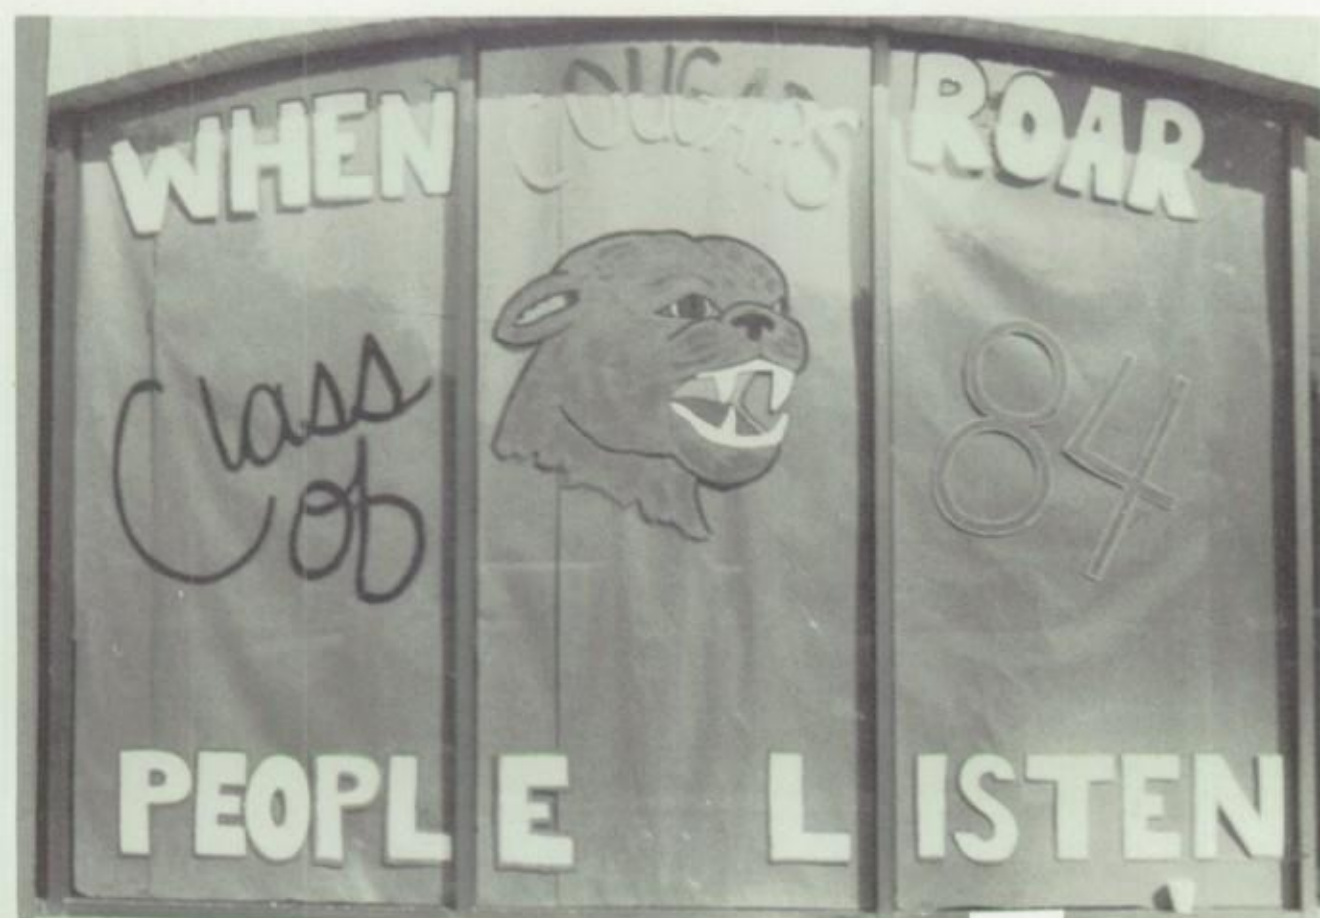 WHEN COUGARS ROAR
Class of 84
PEOPLE LISTEN